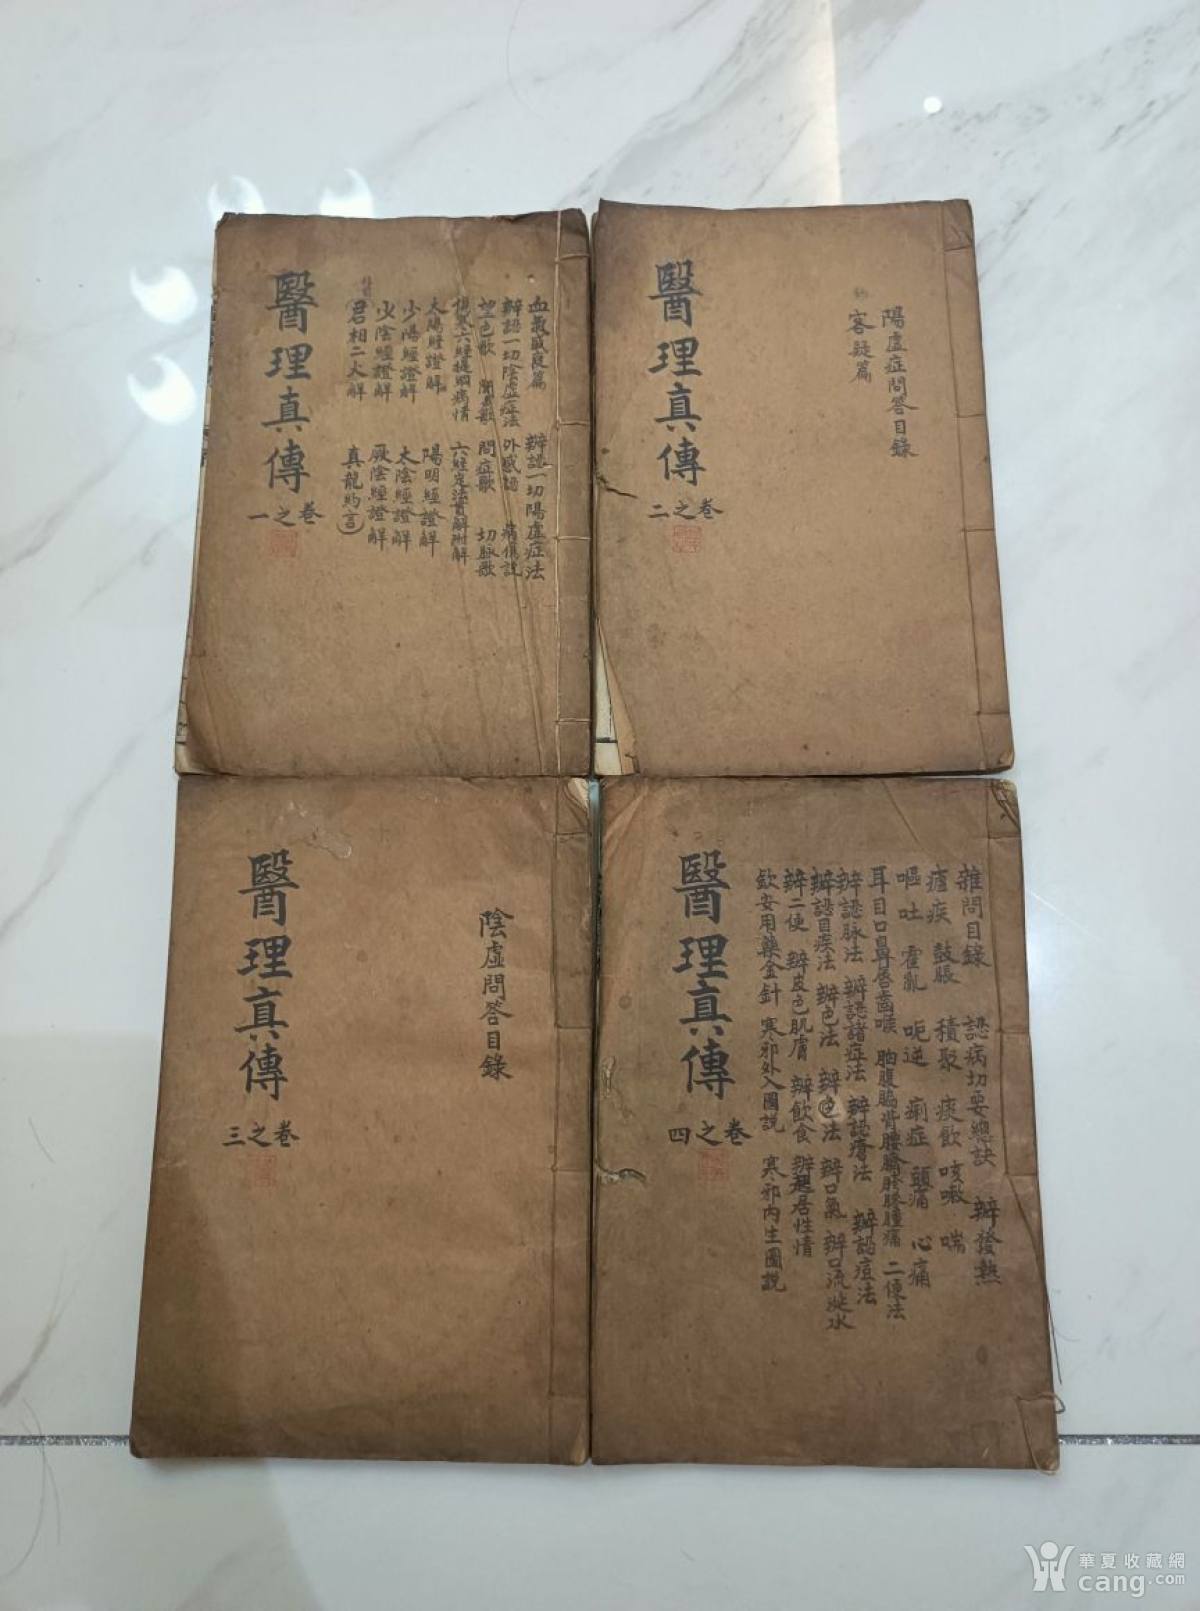 醫理真傳
卷之一
血氣盛衰篇 辨認一切陽虛症法
辨認一切陰虛症法 外感說 病傷說
望色歌 聞聲歌 問症歌 切脉歌
傷寒六經提綱病情 六經定法貫解附解
太陽經證解 陽明經證解
少陽經證解 太陰經證解
少陰經證解 厥陰經證解
君相二火解 真龍約言
醫理真傳
卷之二
陽虛症問答目錄
客疑篇
醫理真傳
卷之三
陰虛問答目錄
醫理真傳
卷之四
雜問目錄 認病切要總訣 辨發熱
瘧疾 鼓脹 積聚 痰飲 咳嗽 喘
嘔吐 霍亂 呃逆 痢症 頭痛 心痛
耳目口鼻唇齒喉 胸腹脇背腰臍 腫痛 二便法
辨認脉法 辨認諸症法 辨認瘡法 辨認痘法
辨認目疾法 辨色法 辨色法 辨口氣 辨口流涎水
辨二便 辨皮色肌膚 辨飲食 辨起居性情
欽安用藥金針 寒邪外入圖說 寒邪内生圖說
華夏收藏網
cang.com